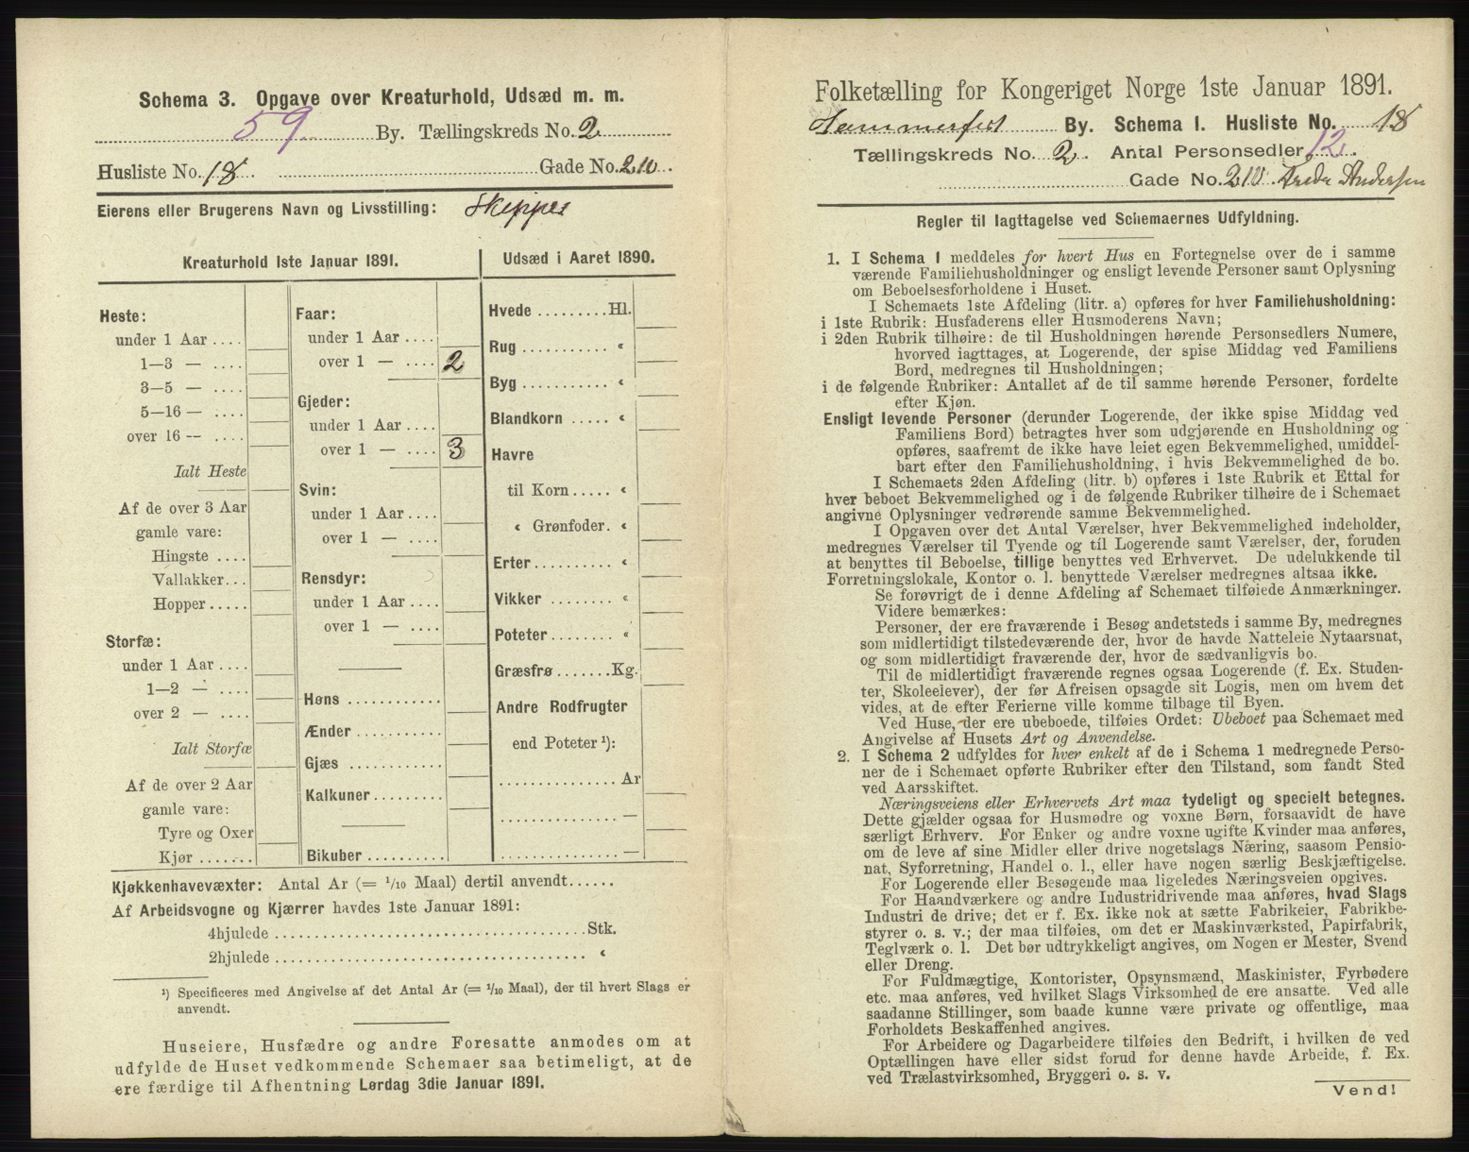 Schema 3. Opgave over Kreaturhold, Udsæd m. m.
59 By. Tællingskreds No. 2
Husliste No. 18 Gade No. 210
Eierens eller Brugerens Navn og Livsstilling: Skipper
Kreaturhold 1ste Januar 1891.
Heste:
under 1 Aar ....
1—3 — ....
3—5 — ....
5—16 — ....
over 16 — ....
Ialt Heste
Af de over 3 Aar
gamle vare:
Hingste ....
Vallakker...
Hopper .....
Storfæ:
under 1 Aar ....
1—2 — ....
over 2 — ....
Ialt Storfæ
Af de over 2 Aar
gamle vare:
Tyre og Oxer
Kjør .......
Faar:
under 1 Aar ....
over 1 — .... 2
Gjeder:
under 1 Aar ....
over 1 — .... 3
Svin:
under 1 Aar ....
over 1 — ....
Rensdyr:
under 1 Aar ....
over 1 — ....
Høns ...........
Ænder ...........
Gjæs ...........
Kalkuner.........
Bikuber ..........
Udsæd i Aaret 1890.
Hvede .........Hl.
Rug .......... «
Byg .......... «
Blandkorn ..... «
Havre
til Korn..... «
« Grønfoder. «
Erter ......... «
Vikker ........ «
Poteter........ «
Græsfrø .......Kg.
Andre Rodfrugter
end Poteter ¹):
............... Ar
............... —
............... —
Kjøkkenhavevæxter: Antal Ar (= 1/10 Maal) dertil anvendt......
Af Arbeidsvogne og Kjærrer havdes 1ste Januar 1891:
4hjulede ........................................Stk.
2hjulede ........................................ «
¹) Specificeres med Angivelse af det Antal Ar (= 1/10 Maal), der til hvert Slags er
anvendt.
Huseiere, Husfædre og andre Foresatte anmodes om at
udfylde de Huset vedkommende Schemaer saa betimeligt, at de
ere færdige til Afhentning Lørdag 3die Januar 1891.
Folketælling for Kongeriget Norge 1ste Januar 1891.
Hammerfest By. Schema I. Husliste No. 18
Tællingskreds No. 2. Antal Personsedler 12.
Gade No. 210 Andersen
Regler til Iagttagelse ved Schemaernes Udfyldning.
1. I Schema 1 meddeles for hvert Hus en Fortegnelse over de i samme
værende Familiehusholdninger og ensligt levende Personer samt Oplysning
om Beboelsesforholdene i Huset.
I Schemaets 1ste Afdeling (litr. a) opføres for hver Familiehusholdning:
i 1ste Rubrik: Husfaderens eller Husmoderens Navn;
i 2den Rubrik tilhøire: de til Husholdningen hørende Personsedlers Numere,
hvorved iagttages, at Logerende, der spise Middag ved Familiens
Bord, medregnes til Husholdningen;
i de følgende Rubriker: Antallet af de til samme hørende Personer, fordelte
efter Kjøn.
Ensligt levende Personer (derunder Logerende, der ikke spise Middag ved
Familiens Bord) betragtes hver som udgjørende en Husholdning og
opføres, saafremt de ikke have leiet egen Bekvemmelighed, umiddel-
bart efter den Familiehusholdning, i hvis Bekvemmelighed de bo.
I Schemaets 2den Afdeling (litr. b) opføres i 1ste Rubrik et Ettal for
hver beboet Bekvemmelighed og i de følgende Rubriker tilhøire de i Schemaet
angivne Oplysninger vedrørende samme Bekvemmelighed.
I Opgaven over det Antal Værelser, hver Bekvemmelighed indeholder,
medregnes Værelser til Tyende og til Logerende samt Værelser, der, foruden
at benyttes til Beboelse, tillige benyttes ved Erhvervet. De udelukkende til
Forretningslokale, Kontor o. l. benyttede Værelser medregnes altsaa ikke.
Se forøvrigt de i denne Afdeling af Schemaet tilføiede Anmærkninger.
Videre bemærkes:
Personer, der ere fraværende i Besøg andetsteds i samme By, medregnes
som midlertidigt tilstedeværende der, hvor de havde Natteleie Nytaarsnat,
og som midlertidigt fraværende der, hvor de sædvanligvis bo.
Til de midlertidigt fraværende regnes ogsaa Logerende (f. Ex. Studen-
ter, Skoleelever), der før Afreisen opsagde sit Logis, men om hvem det
vides, at de efter Ferierne ville komme tilbage til Byen.
Ved Huse, der ere ubeboede, tilføies Ordet: Ubeboet paa Schemaet med
Angivelse af Husets Art og Anvendelse.
2. I Schema 2 udfyldes for hver enkelt af de i Schema 1 medregnede Perso-
ner de i Schemaet opførte Rubriker efter den Tilstand, som fandt Sted
ved Aarsskiftet.
Næringsveiens eller Erhvervets Art maa tydeligt og specielt betegnes.
Dette gjælder ogsaa for Husmødre og voxne Børn, forsaavidt de have
særligt Erhverv. For Enker og andre voxne ugifte Kvinder maa anføres,
om de leve af sine Midler eller drive nogetslags Næring, saasom Pensio-
nat, Syforretning, Handel o. l., eller have nogen særlig Beskjæftigelse.
For Logerende eller Besøgende maa ligeledes Næringsveien opgives.
For Haandværkere og andre Industridrivende maa anføres, hvad Slags
Industri de drive; det er f. Ex. ikke nok at sætte Fabrikeier, Fabrikbe-
styrer o. s. v.; der maa tilføies, om det er Maskinværksted, Papirfabrik,
Teglværk o. l. Det bør udtrykkeligt angives, om Nogen er Mester, Svend
eller Dreng.
For Fuldmægtige, Kontorister, Opsynsmænd, Maskinister, Fyrbødere
etc. maa anføres, ved hvilket Slags Virksomhed de ere ansatte. Ved alle
saadanne Stillinger, som baade kunne være private og offentlige, maa
Forholdets Beskaffenhed angives.
For Arbeidere og Dagarbeidere tilføies den Bedrift, i hvilken de ved
Optællingen have eller sidst forud for denne havde Arbeide, f. Ex.
ved Trælastvirksomhed, Bryggeri o. s. v.
Vend!